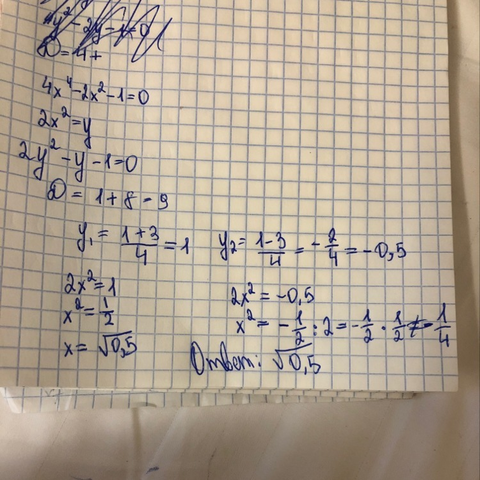 D = 4 +
4x⁴ - 2x² - 1 = 0
2x² = y
2y² - y - 1 = 0
D = 1 + 8 = 9
y₁ = (1+3)/4 = 1 y₂ = (1-3)/4 = -2/4 = -0,5
2x² = 1 2x² = -0,5
x² = 1/2 x² = -1/2 : 2 = -1/2 · 1/2 = -1/4
x = √0,5
Ответ: √0,5